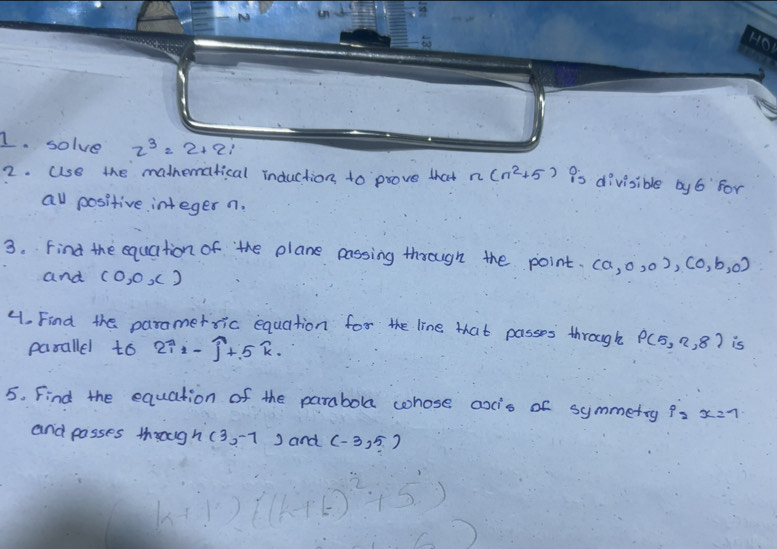 1. solve z³ = 2+2i
2. Use the mathematical induction to prove that n(n²+5) is divisible by 6 for
all positive integer n.
3. Find the equation of the plane passing through the point (a,0,0), (0,b,0)
and (0,0,c)
4. Find the parametric equation for the line that passes through P(5,2,8) is
parallel to 2î - ĵ + 5k̂.
5. Find the equation of the parabola whose axis of symmetry is x=1
and passes through (3,-1) and (-3,5)
(k+1)((k+1)²+5)